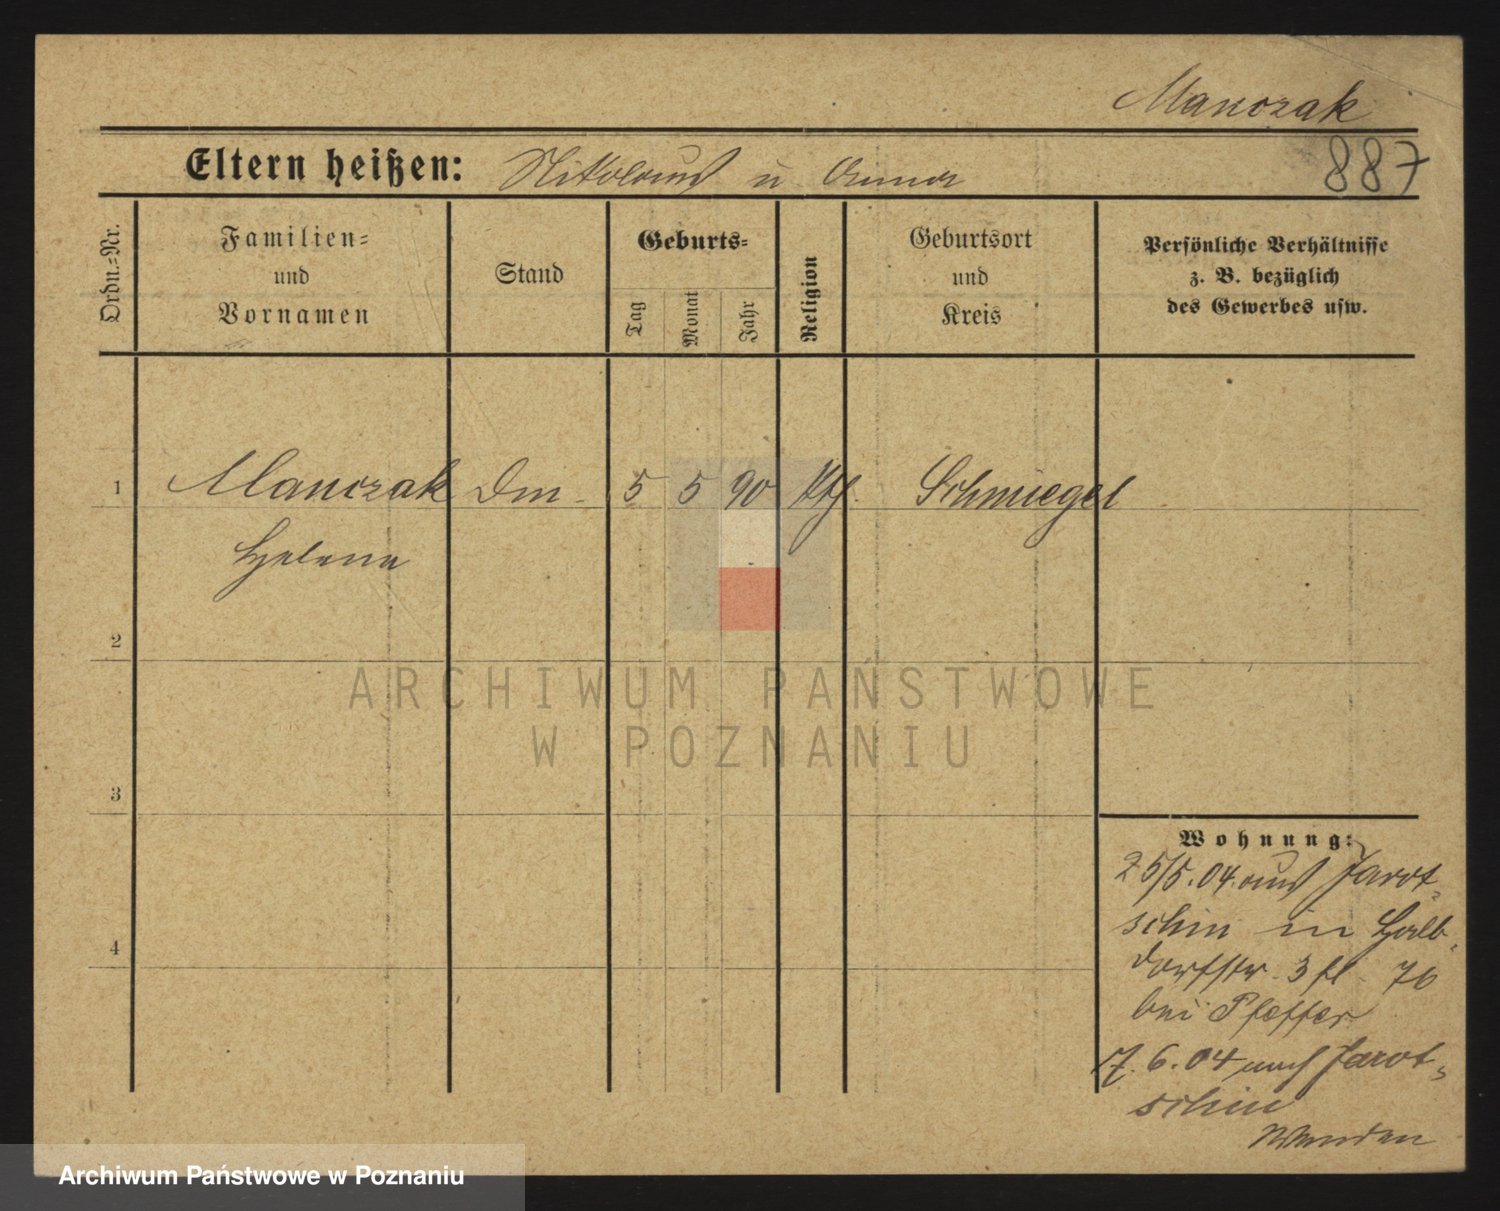 Manczak
Eltern heißen: Nikolaus u Anna
887
Ordn.=Nr.
Familien=
und
Vornamen
Stand
Geburts=
Tag
Monat
Jahr
Religion
Geburtsort
und
Kreis
Persönliche Verhältnisse
z. B. bezüglich
des Gewerbes usw.
1 Manczak Dm. 5 5 90 kth. Schmiegel
Helena
2
3
4
ARCHIWUM PAŃSTWOWE
W POZNANIU
Wohnung:
25/5.04. aus Jarot-
schin in Halb-
dorfstr. 3 fl. 76
bei Pfeffer
7.6.04 nach Jarot-
schin
Wenden
Archiwum Państwowe w Poznaniu